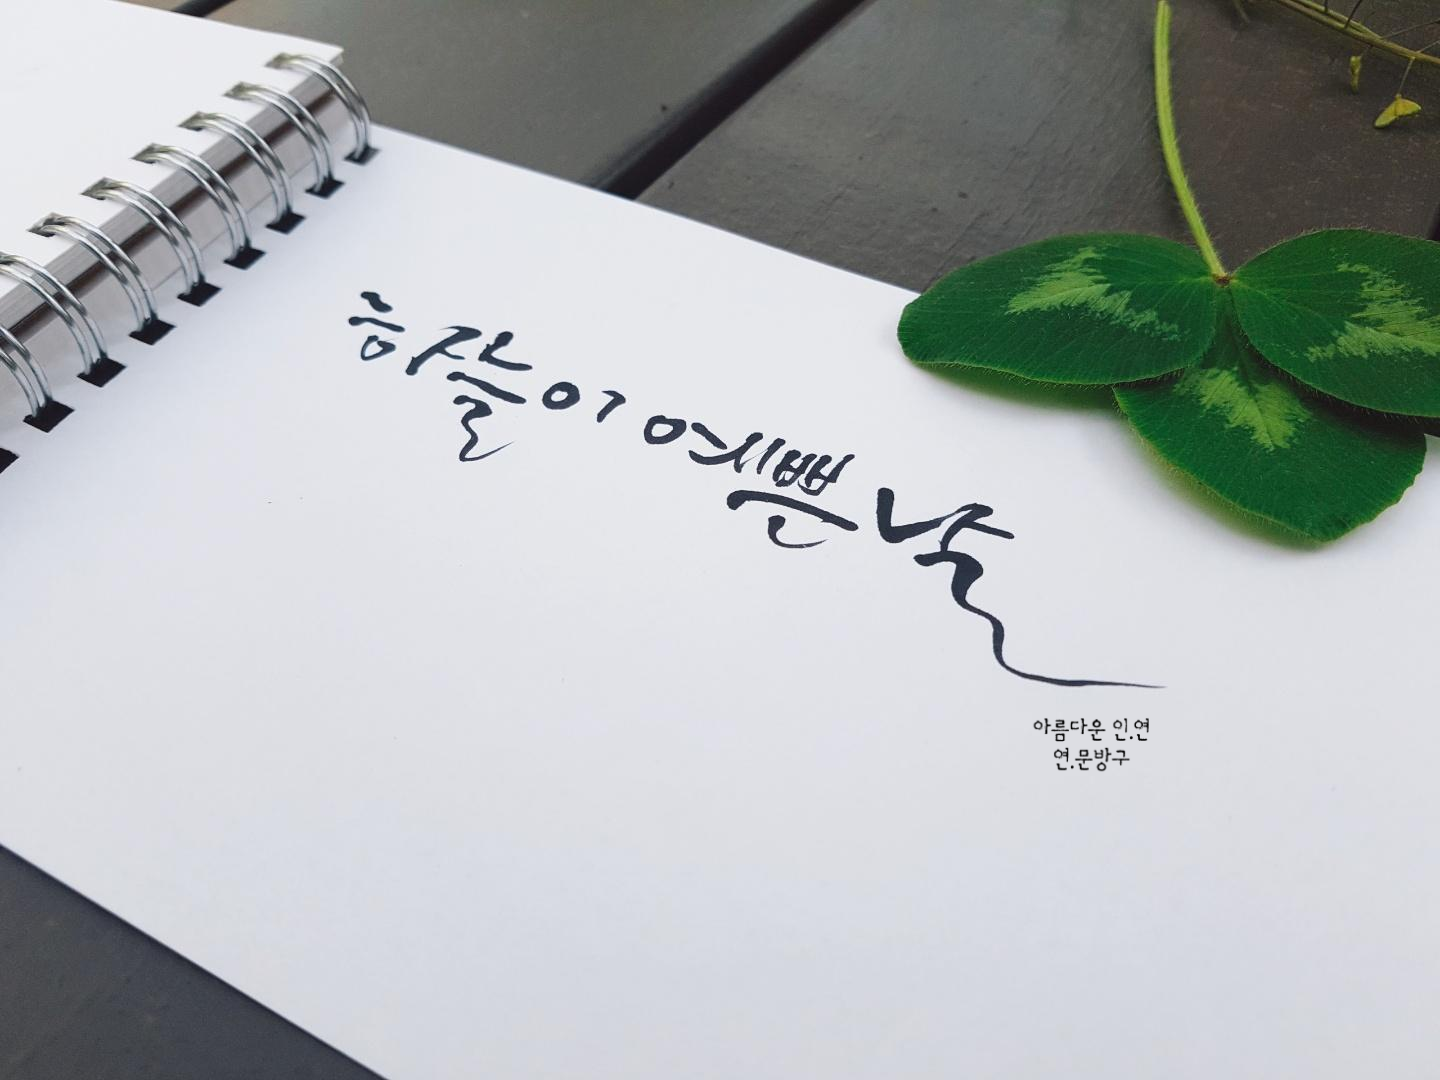 하늘이 예쁜 날
아름다운 인.연
연.문방구